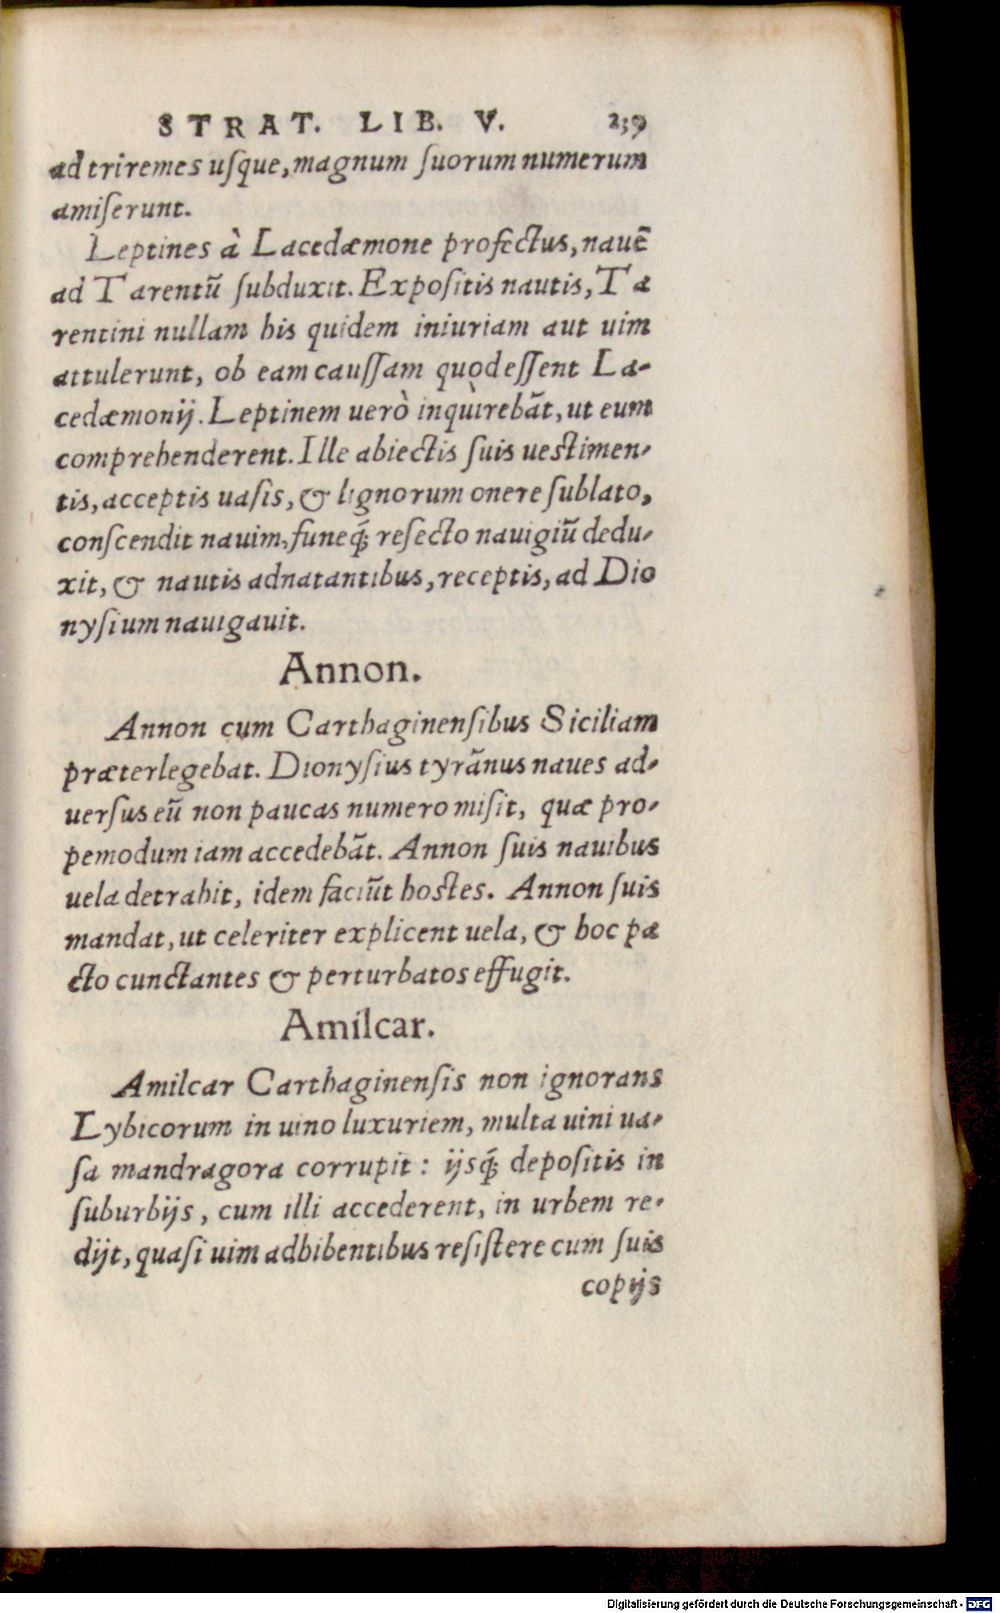 STRAT. LIB. V. 239
ad triremes uſque, magnum ſuorum numerum
amiſerunt.
Leptines à Lacedæmone profectus, nauē
ad Tarentū ſubduxit. Expoſitis nautis, Ta
rentini nullam his quidem iniuriam aut uim
attulerunt, ob eam cauſſam quòd eſſent La-
cedæmonij. Leptinem uerò inquirebāt, ut eum
comprehenderent. Ille abiectis ſuis ueſtimen-
tis, acceptis uaſis, & lignorum onere ſublato,
conſcendit nauim, funeq́; reſecto nauigiū dedu-
xit, & nautis adnatantibus, receptis, ad Dio
nyſium nauigauit.
Annon.
Annon cum Carthaginenſibus Siciliam
præterlegebat. Dionyſius tyrānus naues ad-
uerſus eū non paucas numero miſit, quæ pro-
pemodum iam accedebāt. Annon ſuis nauibus
uela detrahit, idem faciūt hoſtes. Annon ſuis
mandat, ut celeriter explicent uela, & hoc pa
cto cunctantes & perturbatos effugit.
Amilcar.
Amilcar Carthaginenſis non ignorans
Lybicorum in uino luxuriem, multa uini ua-
ſa mandragora corrupit: ijsq́; depoſitis in
ſuburbijs, cum illi accederent, in urbem re-
dijt, quaſi uim adhibentibus reſiſtere cum ſuis
copijs
Digitalisierung gefördert durch die Deutsche Forschungsgemeinschaft - DFG